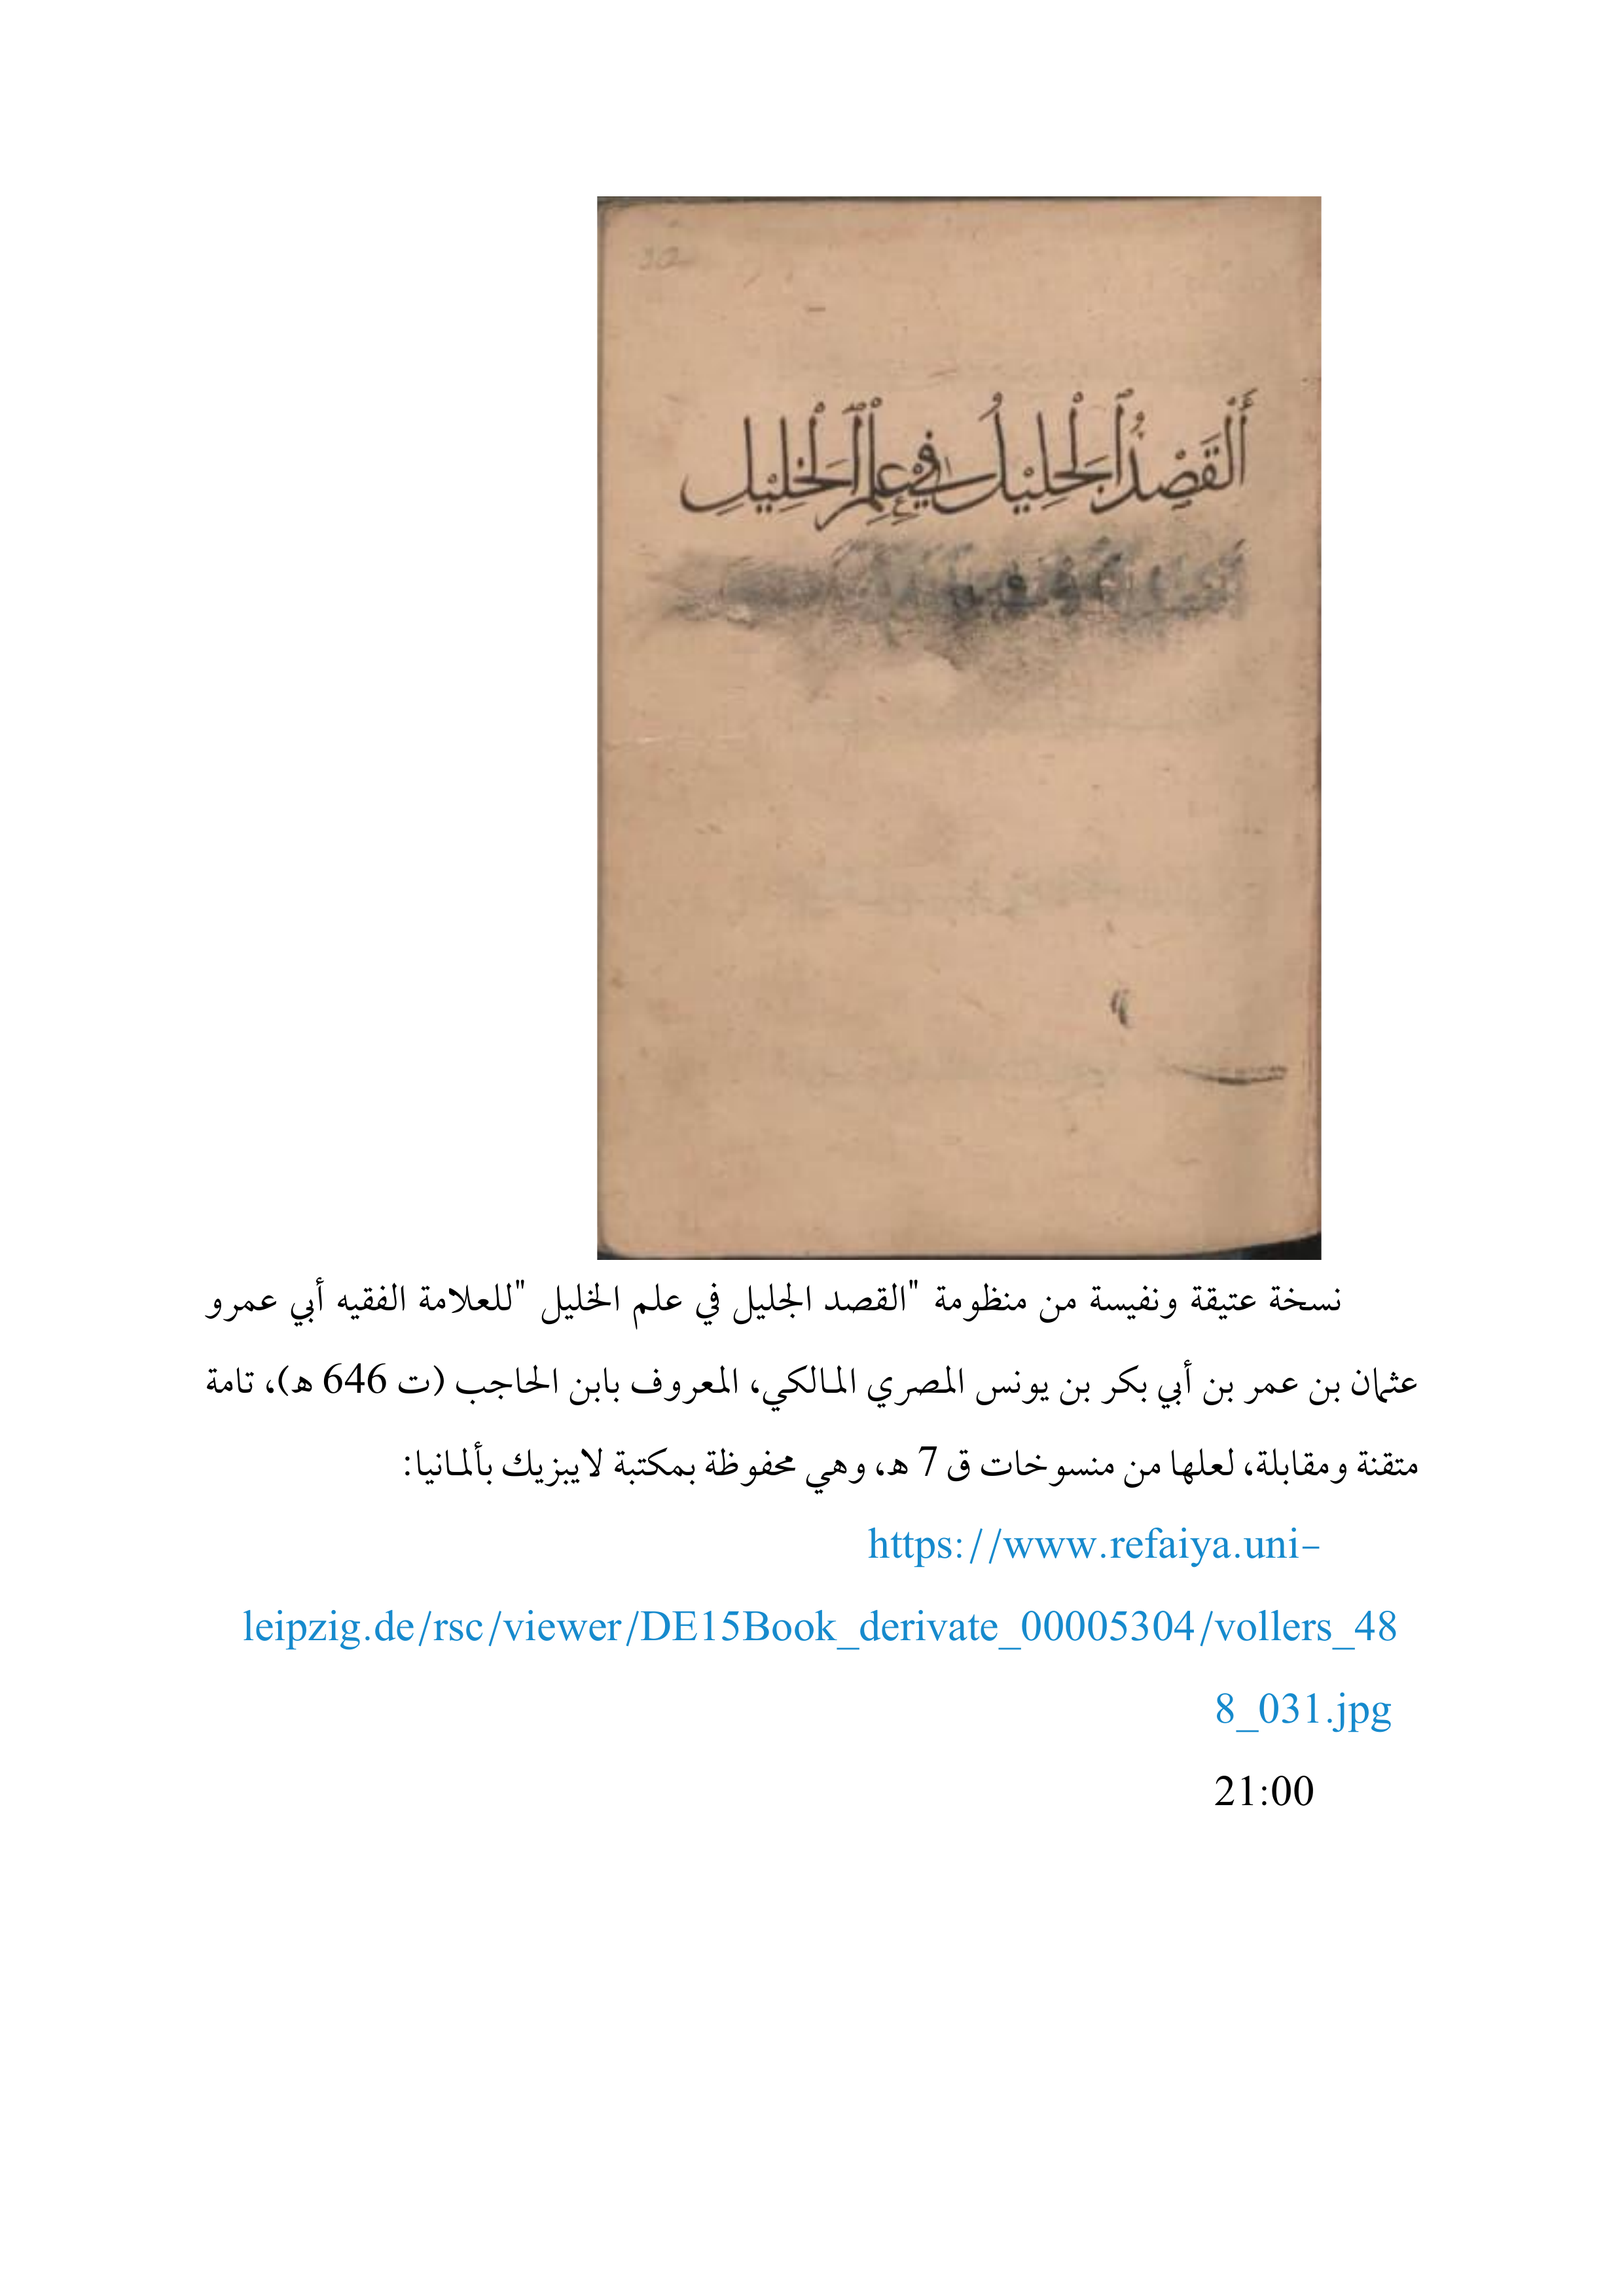 30
أَلْقَصْدُ ٱلْجَلِيْلُ فِيْ عِلْمِ ٱلْخَلِيْلِ
نسخة عتيقة ونفيسة من منظومة "القصد الجليل في علم الخليل "للعلامة الفقيه أبي عمرو
عثمان بن عمر بن أبي بكر بن يونس المصري المالكي، المعروف بابن الحاجب (ت 646 ه)، تامة
متقنة ومقابلة، لعلها من منسوخات ق 7 ه، وهي محفوظة بمكتبة لايبزيك بألمانيا:
https://www.refaiya.uni-
leipzig.de/rsc/viewer/DE15Book_derivate_00005304/vollers_48
8_031.jpg
21:00